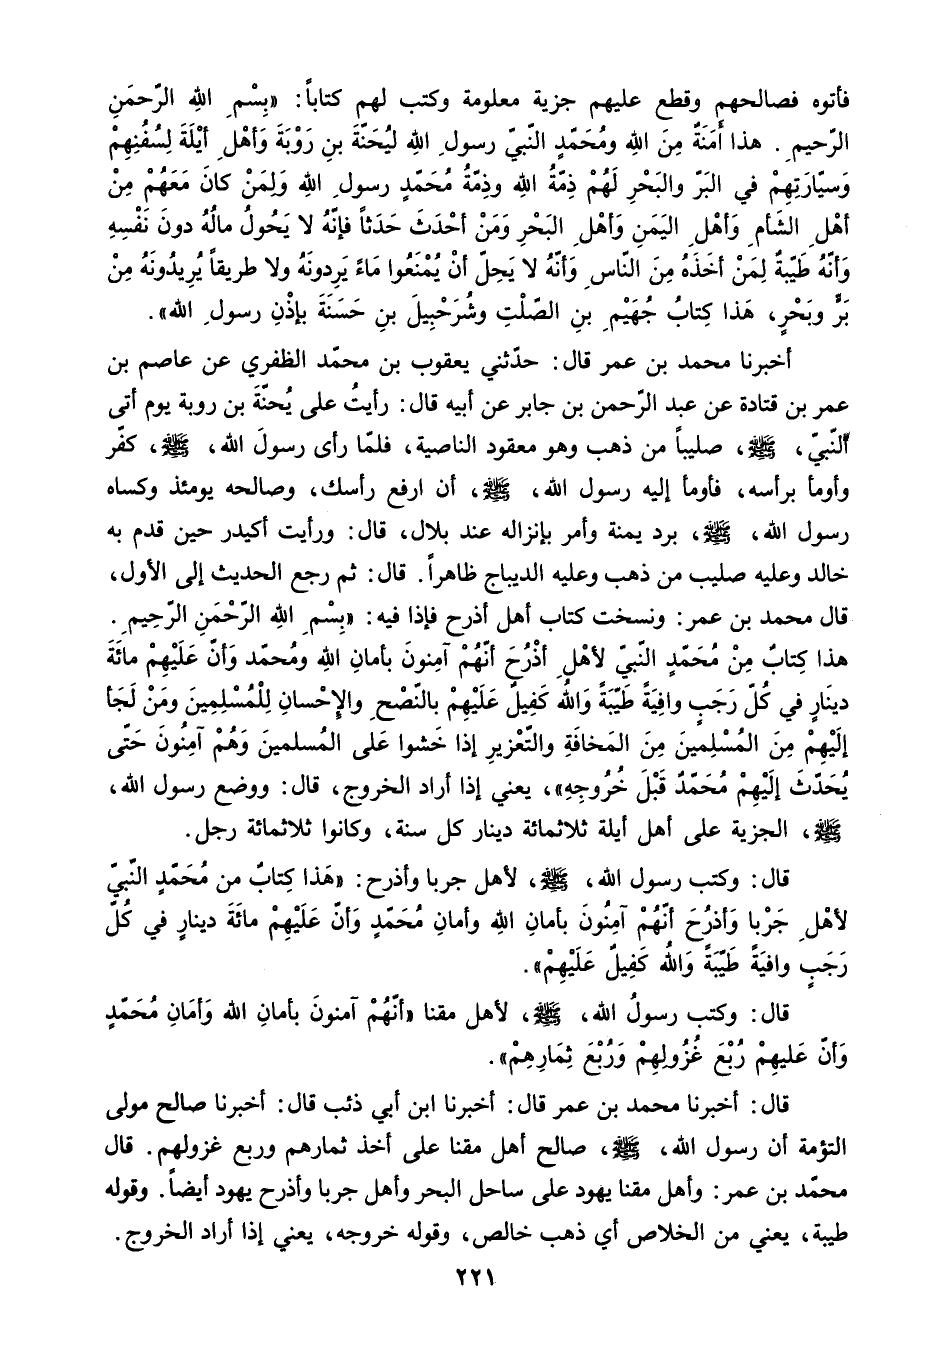 فأتوه فصالحهم وقطع عليهم جزية معلومة وكتب لهم كتاباً: «بِسْمِ اللهِ الرّحمَنِ
الرّحيمِ. هذا أَمَنَةٌ مِنَ اللهِ ومُحَمّدٍ النّبيّ رسولِ اللهِ ليُحَنّةَ بنِ رَوْبَةَ وَأهْلِ أيْلَةَ لِسُفُنِهِمْ
وَسيّارَتِهِمْ في البَرّ والبَحْرِ لَهُمْ ذِمّةُ اللهِ وذِمّةُ مُحَمّدٍ رسولِ اللهِ وَلِمَنْ كانَ مَعَهُمْ مِنْ
أهْلِ الشّأمِ وَأهْلِ اليَمَنِ وَأهْلِ البَحْرِ وَمَنْ أحْدَثَ حَدَثاً فإنّهُ لا يَحُولُ مالُهُ دونَ نَفْسِهِ
وَأنّهُ طَيّبةٌ لِمَنْ أخَذَهُ مِنَ النّاسِ وَأنّهُ لا يَحِلّ أنْ يُمْنَعُوا مَاءً يَرِدونَهُ ولا طريقاً يُريدُونَهُ مِنْ
بَرٍّ وبَحْرٍ، هَذا كِتابُ جُهَيْمِ بنِ الصّلْتِ وشُرَحْبِيلَ بنِ حَسَنَةَ بإذْنِ رسولِ الله».
أخبرنا محمد بن عمر قال: حدّثني يعقوب بن محمّد الظفري عن عاصم بن
عمر بن قتادة عن عبد الرّحمن بن جابر عن أبيه قال: رأيتُ على يُحنّةَ بن روبة يوم أتى
النّبيّ، ﷺ، صليباً من ذهب وهو معقود الناصية، فلمّا رأى رسولَ الله، ﷺ، كفّر
وأومأ برأسه، فأومأ إليه رسول الله، ﷺ، أن ارفع رأسك، وصالحه يومئذ وكساه
رسول الله، ﷺ، برد يمنة وأمر بإنزاله عند بلال، قال: ورأيت أكيدر حين قدم به
خالد وعليه صليب من ذهب وعليه الديباج ظاهراً. قال: ثم رجع الحديث إلى الأول،
قال محمد بن عمر: ونسخت كتاب أهل أذرح فإذا فيه: «بِسْمِ اللهِ الرّحْمَنِ الرّحِيمِ.
هذا كِتابٌ مِنْ مُحَمّدٍ النبيّ لأهْلِ أذْرُحَ أنّهُمْ آمِنونَ بأمانِ اللهِ ومُحمّد وَأنّ عَلَيْهِمْ مائَةَ
دينَارٍ في كُلّ رَجَبٍ وافِيَةً طَيّبَةً وَاللهُ كَفِيلٌ عَلَيْهِمْ بالنّصْحِ والإحْسانِ لِلْمُسْلِمِينَ ومَنْ لَجَأ
إلَيْهِمْ مِنَ المُسْلِمينَ مِنَ المَخافَةِ والتّعْزيرِ إذا خَشوا عَلى المُسلمينَ وَهُمْ آمِنُونَ حَتى
يُحَدّثَ إلَيْهِمْ مُحَمّدٌ قَبْلَ خُرُوجِهِ»، يعني إذا أراد الخروج، قال: ووضع رسول الله،
ﷺ، الجزية على أهل أيلة ثلاثمائة دينار كل سنة، وكانوا ثلاثمائة رجل.
قال: وكتب رسول الله، ﷺ، لأهل جربا وأذرح: «هَذا كِتابٌ من مُحَمّدٍ النّبيّ
لأهْلِ جَرْبا وَأذرُحَ أنّهُمْ آمِنُونَ بأمانِ اللهِ وأمانِ مُحَمّدٍ وَأنّ عَلَيْهِمْ مائَةَ دينارٍ في كُلّ
رَجَبٍ وافيَةً طَيّبَةً وَاللهُ كَفِيلٌ عَلَيْهِمْ».
قال: وكتب رسولُ الله، ﷺ، لأهل مقنا «أنّهُمْ آمنونَ بأمانِ الله وَأمَانِ مُحَمّدٍ
وَأنّ عَليهِمْ رُبْعَ غُزُولِهِمْ وَرُبْعَ ثِمَارِهِمْ».
قال: أخبرنا محمد بن عمر قال: أخبرنا ابن أبي ذئب قال: أخبرنا صالح مولى
التؤمة أن رسول الله، ﷺ، صالح أهل مقنا على أخذ ثمارهم وربع غزولهم. قال
محمّد بن عمر: وأهل مقنا يهود على ساحل البحر وأهل جربا وأذرح يهود أيضاً. وقوله
طيبة، يعني من الخلاص أي ذهب خالص، وقوله خروجه، يعني إذا أراد الخروج.
٢٢١